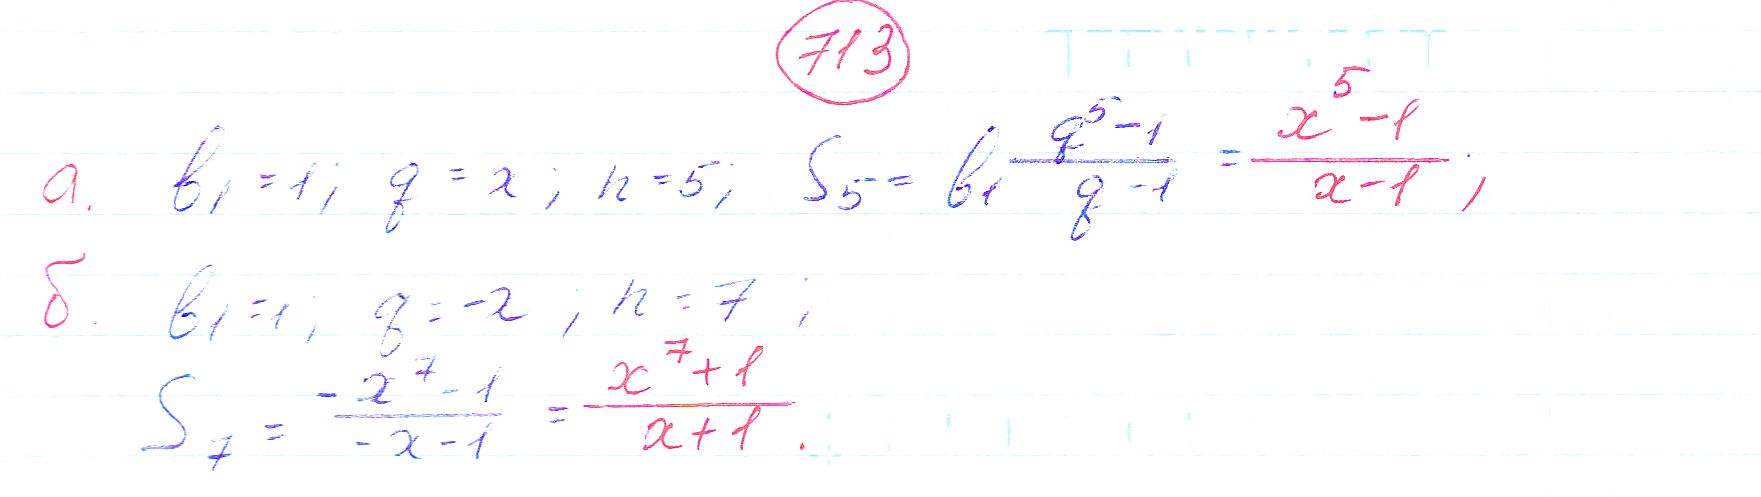 713
а. b₁ = 1; q = x; n = 5; S₅ = b₁ (q⁵ - 1)/(q - 1) = (x⁵ - 1)/(x - 1);
б. b₁ = 1; q = -x; n = 7;
S₇ = (-x⁷ - 1)/(-x - 1) = (x⁷ + 1)/(x + 1).